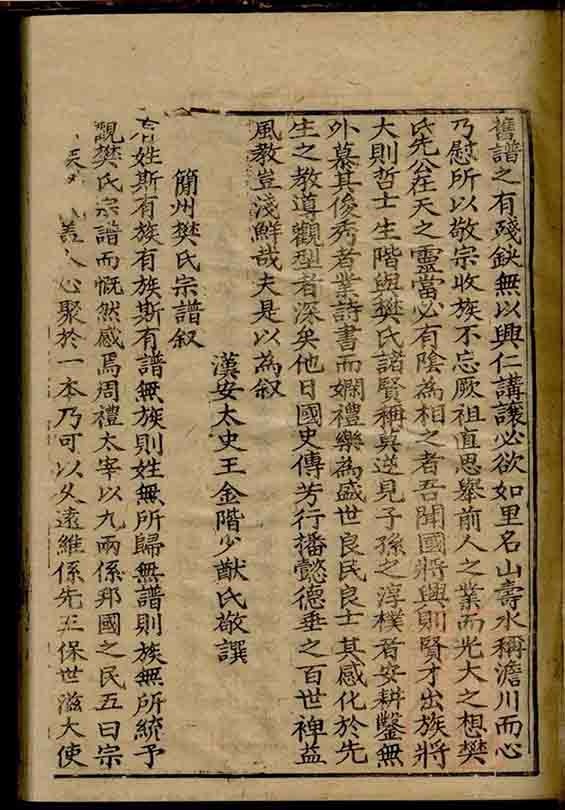 舊譜之有殘缺無以興仁講讓必欲如里名山壽水稱澹川而心
乃慰所以敬宗收族不忘厥祖直思舉前人之業而光大之想樊
氏先公在天之靈當必有陰為相之者吾聞國將興則賢才出族將
大則哲士生階與樊氏諸賢稱莫逆見子孫之淳樸者安耕鑿無
外慕其俊秀者業詩書而嫻禮樂為盛世良民良士其感化於先
生之教導觀型者深矣他日國史傳芳行播懿德垂之百世裨益
風教豈淺鮮哉夫是以為叙
漢安太史王金階少猷氏敬譔
簡州樊氏宗譜叙
姓斯有族有族斯有譜無族則姓無所歸無譜則族無所統予
觀樊氏宗譜而慨然感焉周禮太宰以九兩係邦國之民五曰宗
人心聚於一本乃可以久遠維係先王保世滋大使